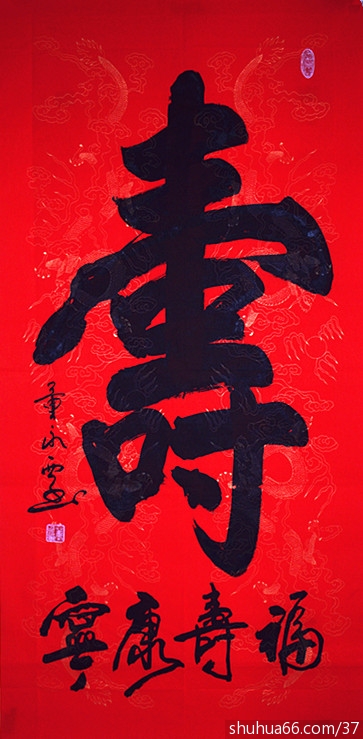 壽
福壽康寧
shuhua66.com/37